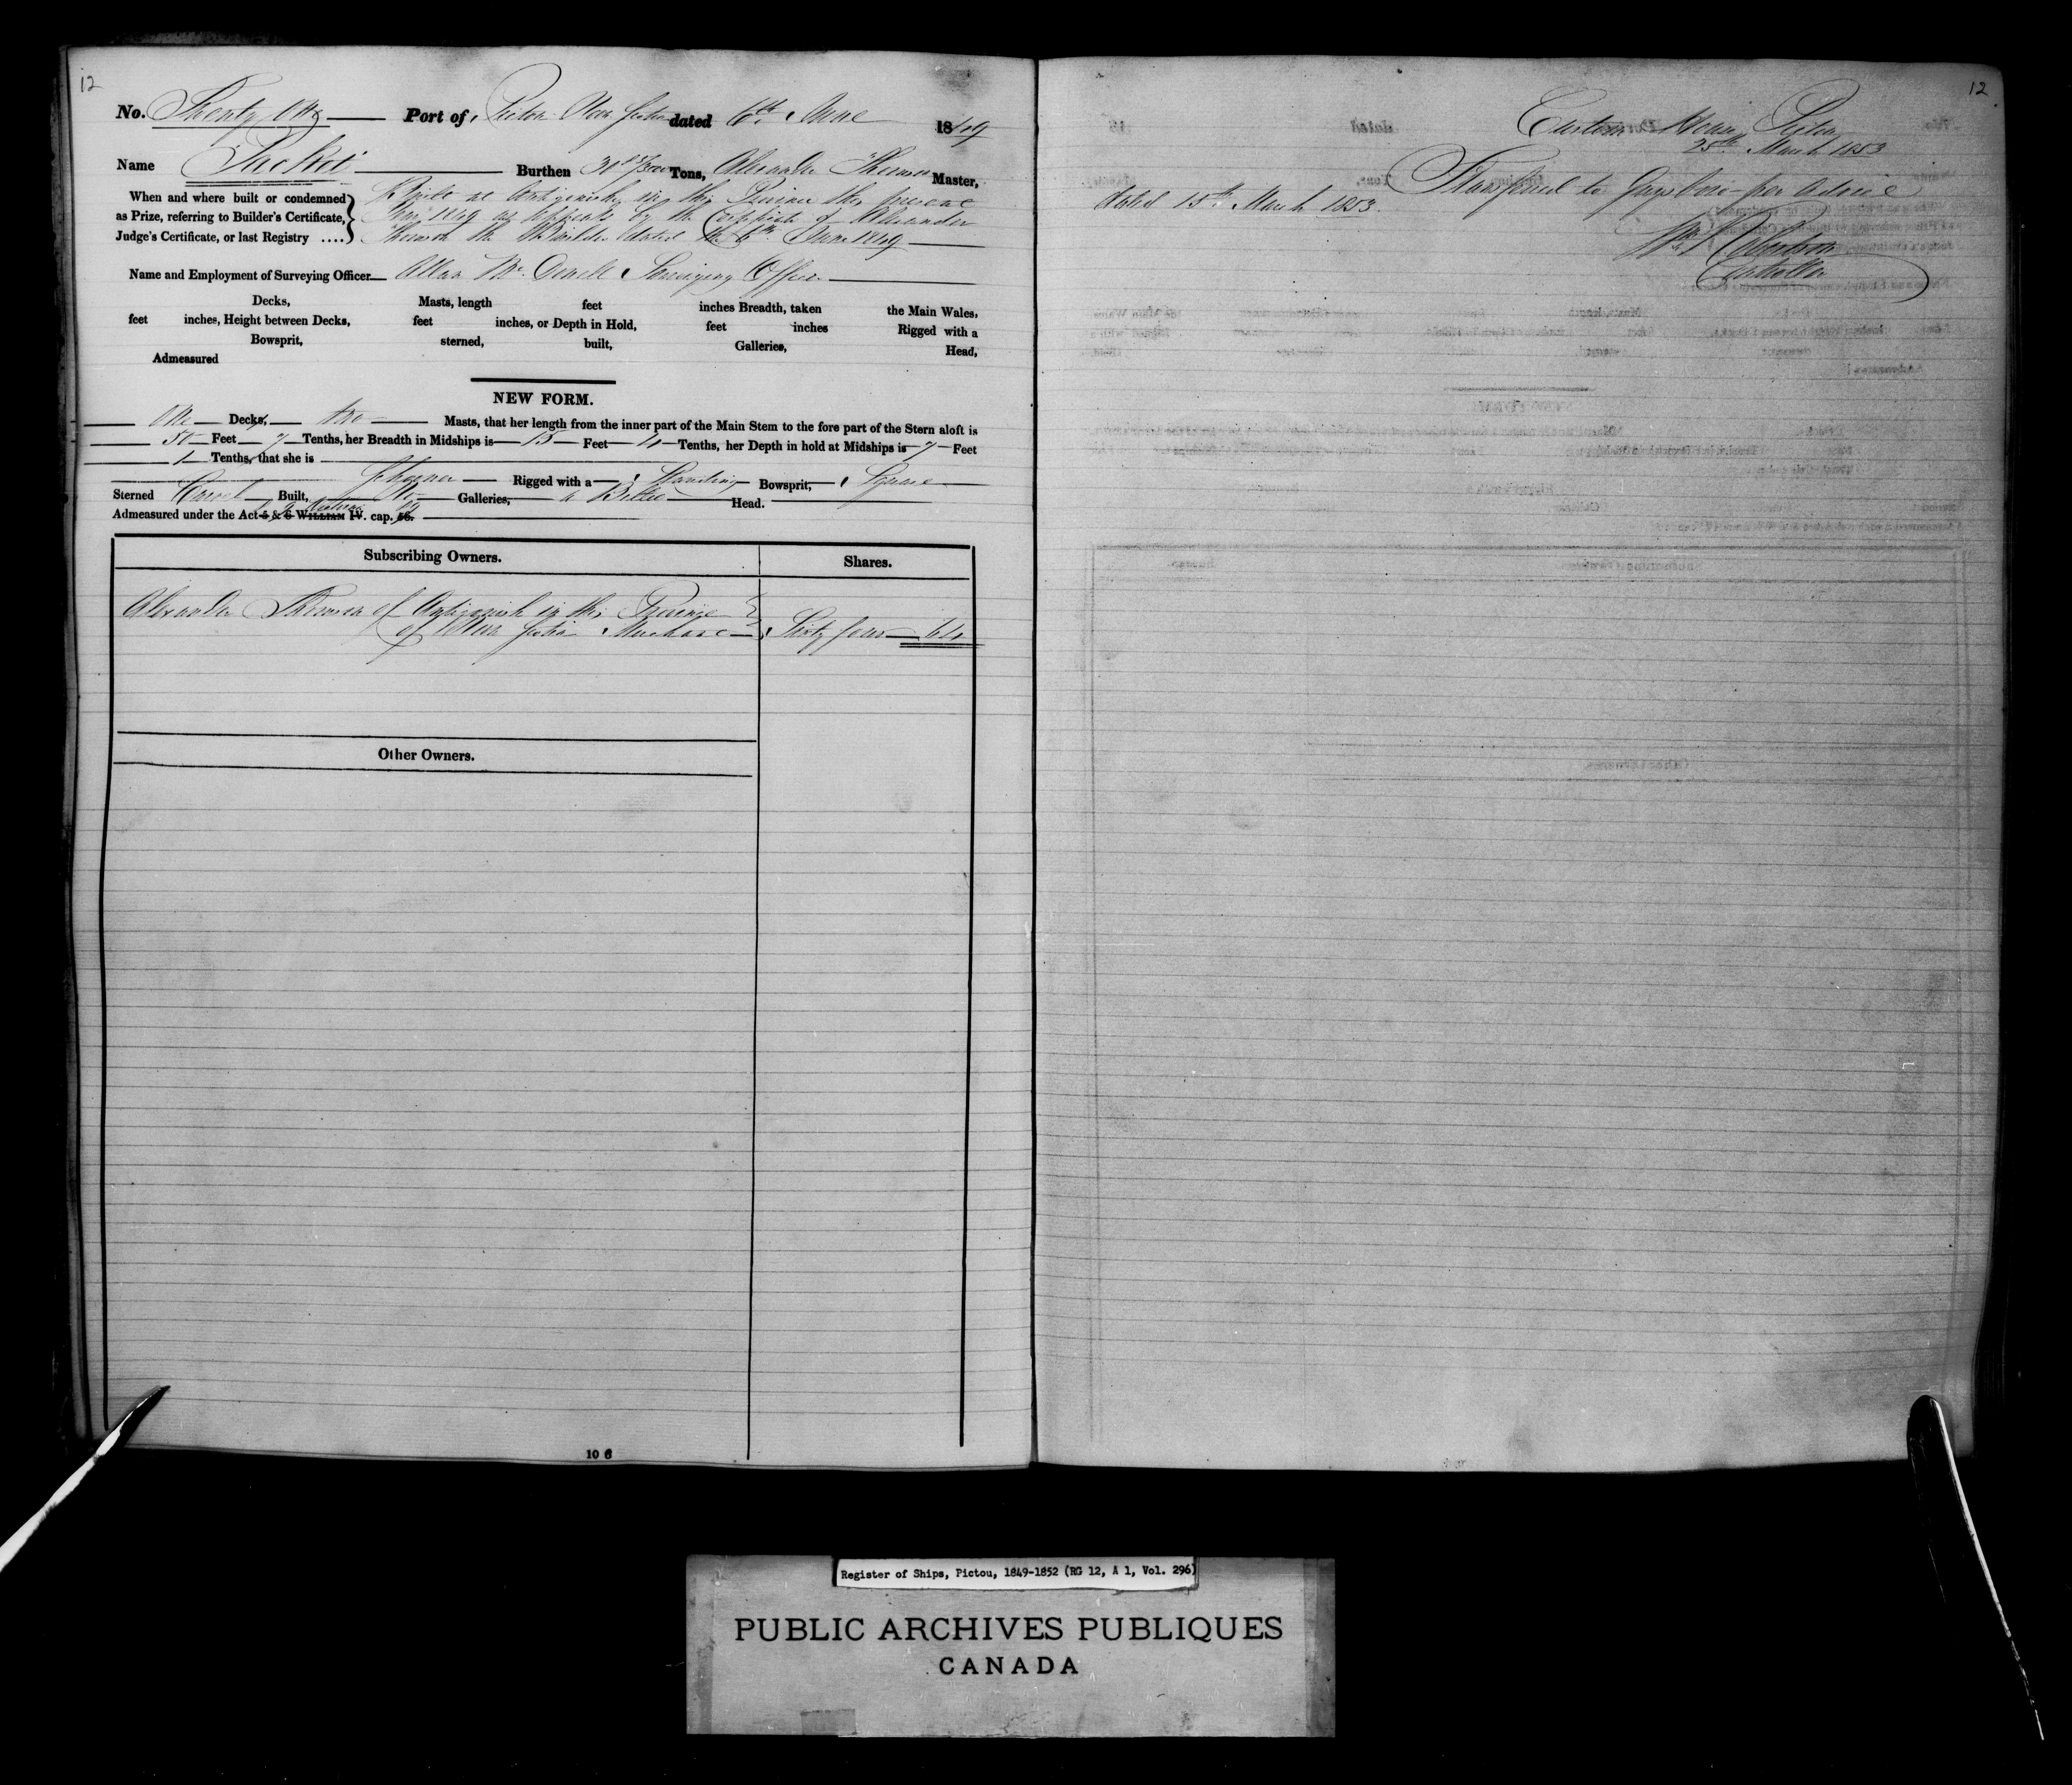 12
No. Twenty One Port of Pictou Nova Scotia dated 6th June 1849
Name Packet Burthen 31 Tons, Alexander Master,
When and where built or condemned as Prize, referring to Builder's Certificate, Judge's Certificate, or last Registry ....
Built at Antigonish in this Province this present
Year 1849 as appears by the Certificate of Alexander
the Builder dated the 6th June 1849
Name and Employment of Surveying Officer Allan Mc Surveying Officer
Decks, Masts, length feet inches Breadth, taken the Main Wales,
feet inches, Height between Decks, feet inches, or Depth in Hold, feet inches Rigged with a
Bowsprit, sterned, built, Galleries, Head,
Admeasured
NEW FORM.
One Decks, two Masts, that her length from the inner part of the Main Stem to the fore part of the Stern aloft is
50 Feet 7 Tenths, her Breadth in Midships is 15 Feet 4 Tenths, her Depth in hold at Midships is 7 Feet
1 Tenths, that she is
Schooner Rigged with a Standing Bowsprit, Square
Sterned Carvel Built, No Galleries, a Billet Head.
Admeasured under the Act 5 & 6 WILLIAM IV. cap. 56.
Subscribing Owners. Shares.
Alexander of Antigonish in this Province
of Nova Scotia Merchant Sixty four 64
Other Owners.
10 6
12
Custom House Pictou
25th March 1853
Transferred to Guysboro per advice
dated 15th March 1853.
Controller
Register of Ships, Pictou, 1849-1852 (RG 12, A 1, Vol. 296)
PUBLIC ARCHIVES PUBLIQUES
CANADA